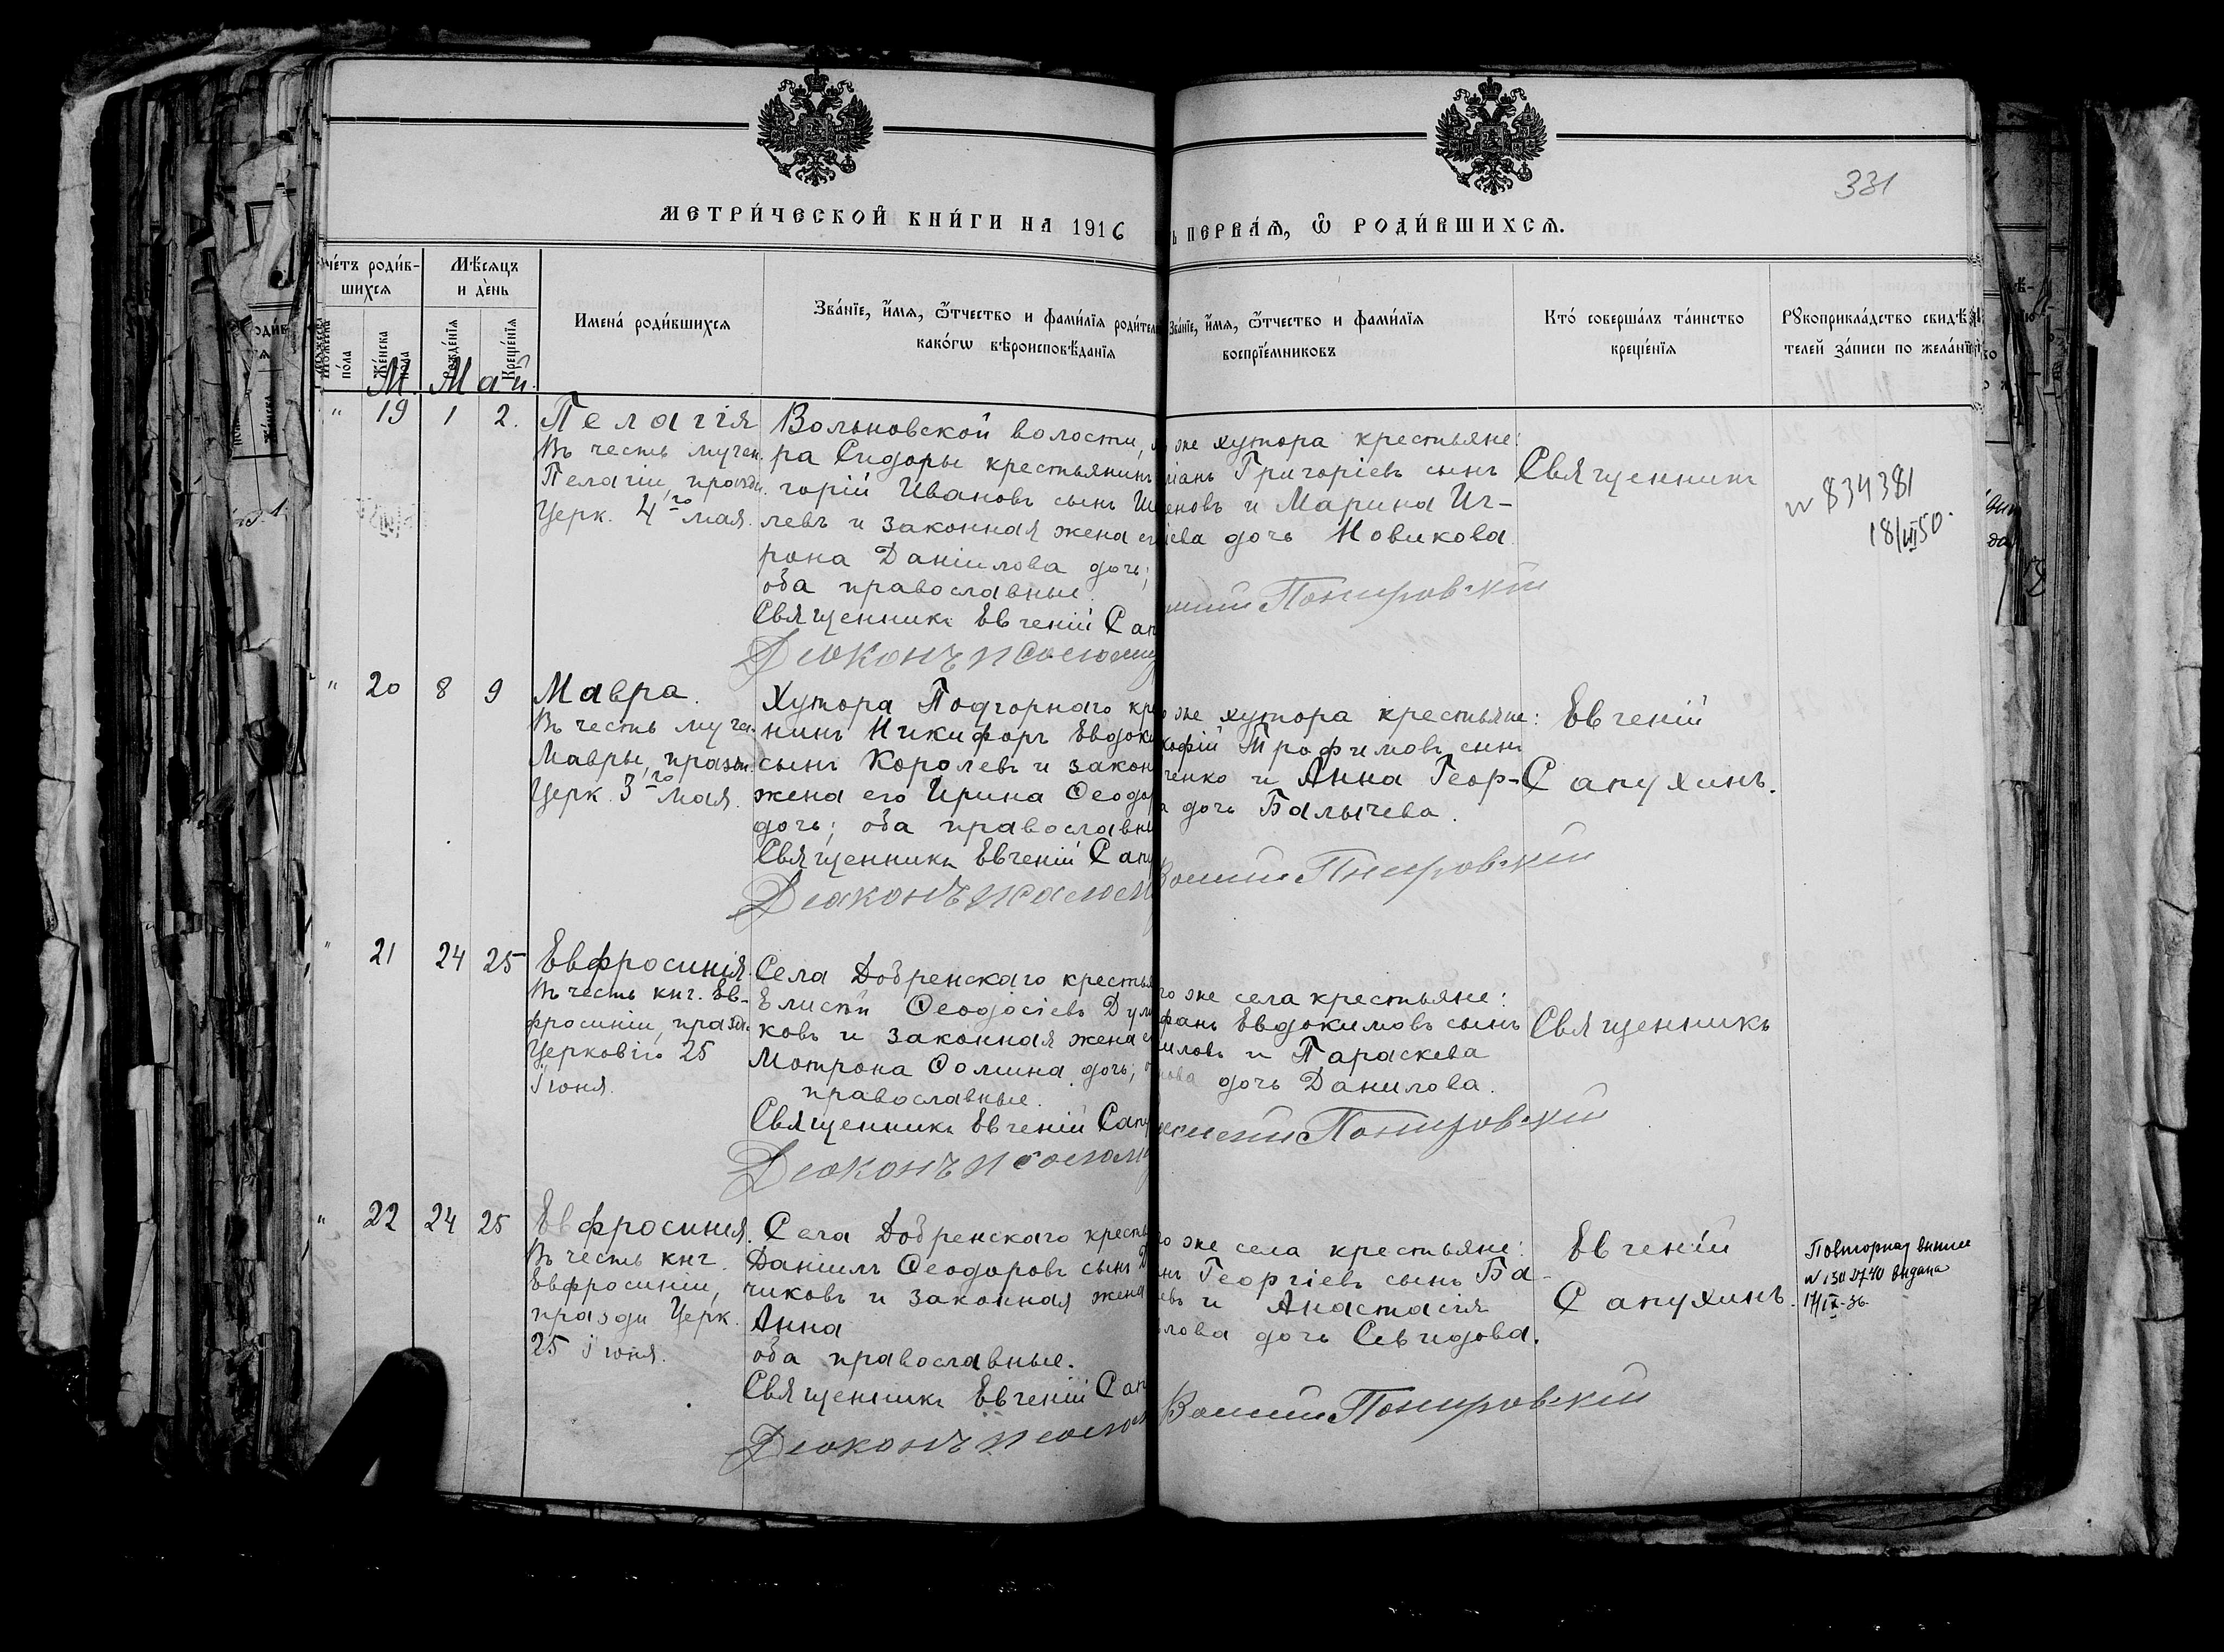 331
МЕТРИ́ЧЕСКОЙ КНИ́ГИ НА 1916
ПЕРВА́Ѧ, Ѽ РОДИ́ВШИХСѦ.
че́тъ роди́в-
шихсѧ
Мѣ́сѧцъ
и де́нь
Имена̀ роди́вшихсѧ
Зва́нїе, и́мѧ, ѻ́тчество и фами́лїѧ родител
како́гѡ вѣроисповѣ́данїѧ
Зва́нїе, и́мѧ, ѻ́тчество и фами́лїѧ
воспрїе́мниковъ
Кто̀ соверша́лъ та́инство
креще́нїѧ
Рꙋкоприкла́дство свидѣ́
телей за́писи по жела́нїю
пола
Же́нска
пола
Рожде́нїѧ
Креще́нїѧ
М. Май.
" 19 1 2. Пелагія
Въ честь мучен.
Пелагіи, праздн.
Церк. 4го мая.
Вольновской волости,
ра Сидоры крестьянинъ
горій Ивановъ сынъ
левъ и законная жена ег
рона Даніилова дочь;
оба православные.
Священникъ Евгеній Сап
Діаконъ
же хутора крестьяне:
Григоріевъ сынъ
еновъ и Марина Иг-
дочь Новикова.
Священникъ
N 834381
18/VII 50.
" 20 8 9 Мавра.
Въ честь мучен.
Мавры, праздн.
Церк. 3го мая.
Хутора Подгорнаго кре
нинъ Никифоръ Евдоки
сынъ Королевъ и закон
жена его Ирина Ѳеодор
дочь; оба православны
Священникъ Евгеній Сапу
Діаконъ
же хутора крестьяне:
кофій Трофимовъ сынъ
ченко и Анна Геор-
дочь Балычева.
Евгеній
Сапухинъ.
" 21 24 25 Евфросинія.
Въ честь кнг. Ев-
фросиніи, праздн.
Церковію 25
Іюня.
Села Добренскаго крестья
Елисѣй Ѳеодосіевъ Дул
ковъ и законная жена е
Мотрона Ѳомина дочь;
православные.
Священникъ Евгеній Сапу
Діаконъ
го же села крестьяне:
фанъ Евдокимовъ сынъ
иловъ и Параскева
нова дочь Данилова.
Священникъ
" 22 24 25 Евфросинія.
Въ честь кнг.
Евфросиніи,
праздн Церк.
25 Іюня.
Села Добренскаго кресть
Даніилъ Ѳеодоровъ сынъ
чиковъ и законная жена
Анна
оба православные.
Священникъ Евгеній Сап
Діаконъ
го же села крестьяне:
нъ Георгіевъ сынъ Ба-
евъ и Анастасія
лова дочь Севидова.
Евгеній
Сапухинъ.
Повторная
выдана